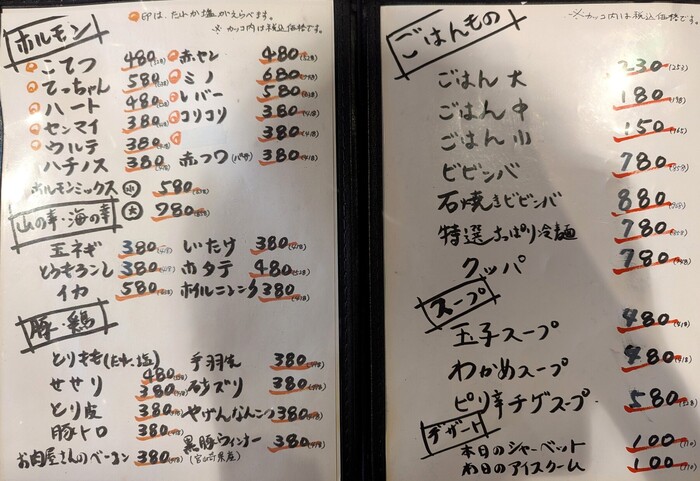 ホルモン
○印は、たれか塩がえらべます。
※カッコ内は税込価格です。
こてつ 480(528) 赤セン 480(528)
てっちゃん 580(638) ミノ 680(748)
ハート 480(528) レバー 580(638)
センマイ 380(418) コリコリ 380(418)
ウルテ 380(418) 380(418)
ハチノス 380(418) 赤フワ 380(418)
ホルモンミックス 小 580
大 780
山の幸・海の幸
玉ネギ 380(418) しいたけ 380(418)
とうもろこし 380(418) ホタテ 480(528)
イカ 580 ホイルニンニク 380(418)
豚・鶏
とりもも(たれ・塩) 480 手羽先 380
せせり 380 砂ズリ 380
とり皮 380 やげんなんこつ 380
豚トロ 380 黒豚ウィンナー 380
お肉屋さんのベーコン 380 (宮崎県産)
ごはんもの
※カッコ内は税込価格です。
ごはん 大 230(253)
ごはん 中 180(198)
ごはん 小 150(165)
ビビンバ 780
石焼きビビンバ 880
特選さっぱり冷麺 780
クッパ 780
スープ
玉子スープ 480
わかめスープ 480
ピリ辛チゲスープ 580
デザート
本日のシャーベット 100(110)
本日のアイスクリーム 100(110)